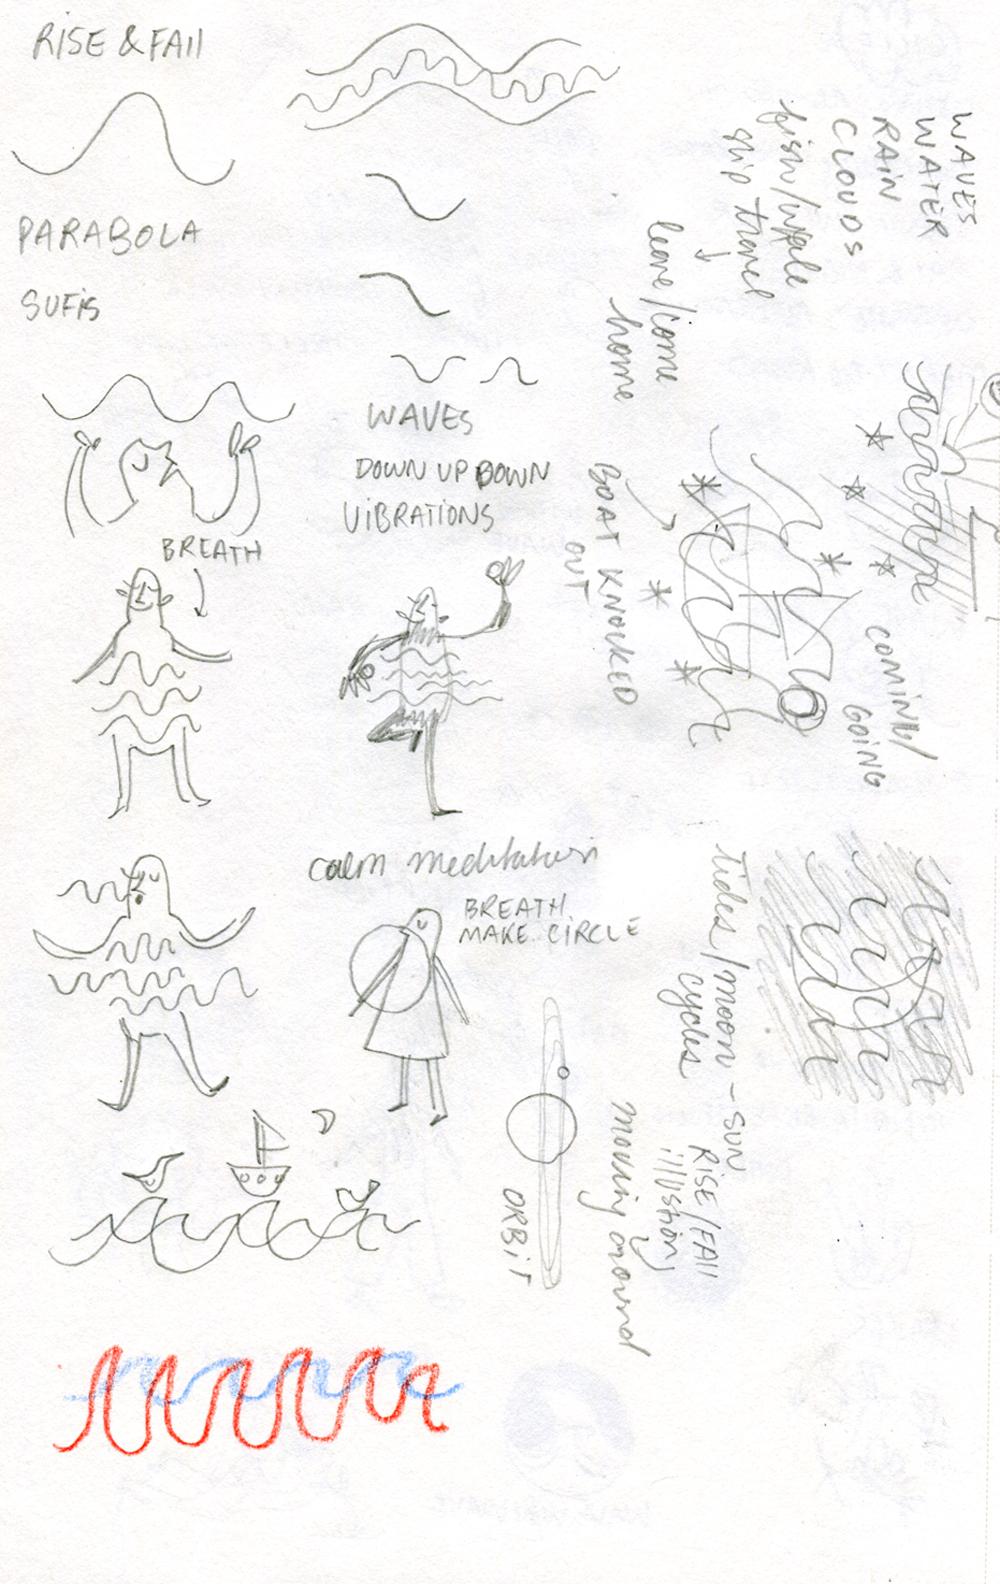 RISE & FALL
PARABOLA
SUFIS
WAVES
DOWN UP DOWN
VIBRATIONS
BREATH
calm meditation
BREATH
MAKE CIRCLE
ORBIT
WAVES
WATER
RAIN
CLOUDS
fish/whale
ship travel
leave/come
home
BOAT KNOCKED
OUT
COMING/
GOING
tides/moon - SUN
cycles
RISE/FALL
illusion
moving around